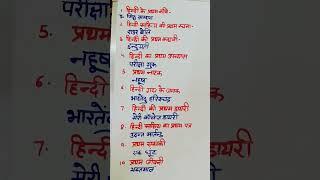 1. हिन्दी के प्रथम कवि-
सिद्ध सरहपा
2. हिन्दी साहित्य की प्रथम रचना-
श्रावकाचार
3. हिन्दी की प्रथम कहानी-
इन्दुमती
4. हिन्दी का प्रथम उपन्यास
परीक्षा गुरु
5. प्रथम नाटक
नहुष
6. हिन्दी गद्य के जनक
भारतेंदु हरिश्चन्द्र
7. हिन्दी की प्रथम डायरी
मेरी कॉलेज डायरी
8. हिन्दी साहित्य का प्रथम पत्र
उदन्त मार्तण्ड
9. प्रथम एकांकी
एक घूंट
10. प्रथम जीवनी
भक्तमाल